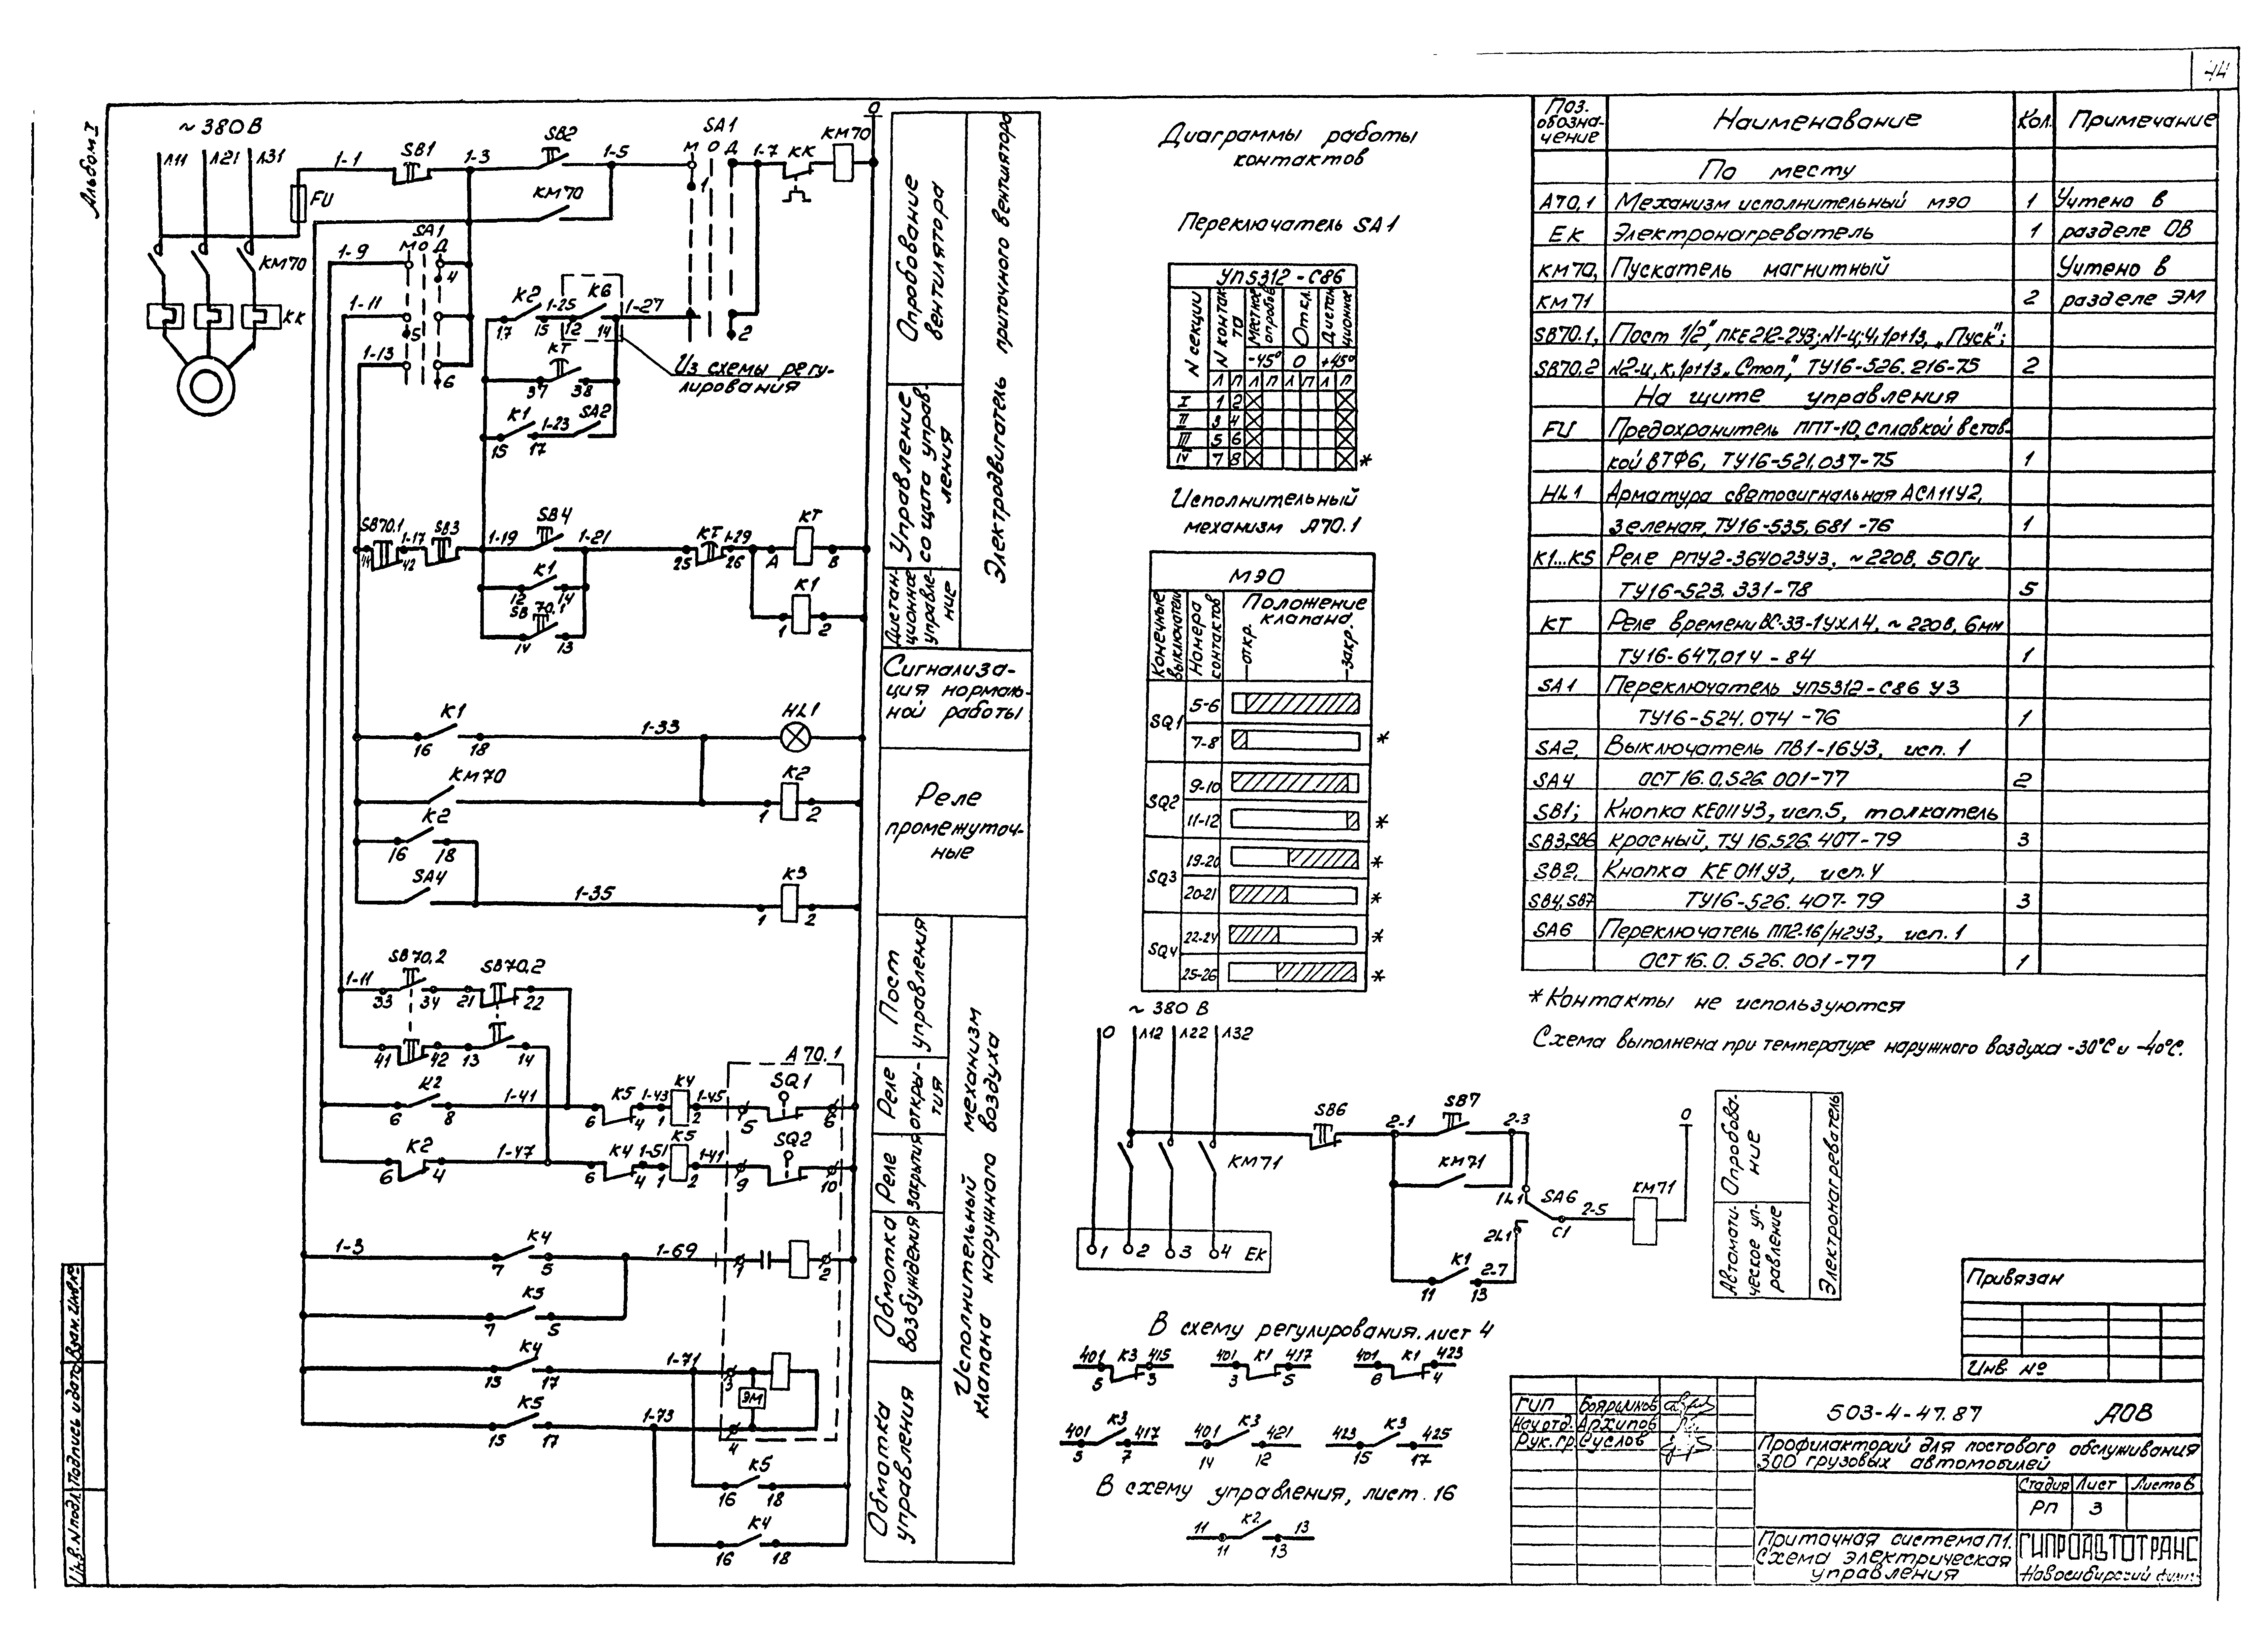 44
Альбом I
~380 В
Л11 Л21 Л31
FU
KM70
KK
1-1 SB1 1-3 SB2 1-5 SA1 1-7 KK KM70 0
М О Д
KM70
1
2
1-9 SA1
М О Д
4
1-11
5
1-13
6
K2 1-25 K6 1-27
17 15 12 14
KT
37 38
Из схемы регу-
лирования
K1 1-23 SA2
15 17
SB70.1 1-17 SB3 1-19 SB4 1-21 KT 1-29 KT
41 42 25 26 A B
K1 K1
12 14 1 2
SB 70.1
14 13
K1 1-33 HL1
16 18
KM70 K2
1 2
K2
16 18
SA4 1-35 K3
1 2
1-11 SB70.2 SB70.2
33 34 21 22
41 42 13 14
A 70.1
K2 1-41 K5 1-43 K4 1-45 SQ1
6 8 6 4 1 2 5 6
K2 1-47 K4 1-51 K5 1-41 SQ2
6 4 6 4 1 2 9 10
1-3 K4 1-69
7 5 1 2
K5
7 5
K4 1-71
15 17 3
ЭМ
K5 1-73
15 17 4
K5
16 18
K4
16 18
Опробование
вентилятора
Управление
со щита управ-
ления
Дистан-
ционное
управле-
ние
Электродвигатель приточного вентилятора
Сигнализа-
ция нормаль-
ной работы
Реле
промежуточ-
ные
Пост
управления
Реле
откры-
тия
Реле
закрытия
Обмотка
возбуждения
Обмотка
управления
Исполнительный механизм
клапана наружного воздуха
Диаграммы работы
контактов
Переключатель SA1
УП5312-С86
N секции
N контак-
та
Местное
опробов.
Откл.
Дистан-
ционное
-45° 0 +45°
Л П Л П Л П Л П
I 1 2
II 3 4
III 5 6
IV 7 8 *
Исполнительный
механизм А70.1
МЭО
Конечные
выключатели
Номера
контактов
Положение
клапана
откр. закр.
SQ1 5-6
7-8 *
SQ2 9-10
11-12 *
SQ3 19-20 *
20-21 *
SQ4 22-24 *
25-26 *
~380 В
0 Л12 Л22 Л32
KM71
1 2 3 4 EK
SB6 2-1 SB7 2-3
KM71
1L1 SA6 2-5 KM71 0
2L1 C1
K1 2-7
11 13
Опробова-
ние
Автомати-
ческое уп-
равление
Электронагреватель
В схему регулирования. лист 4
401 K3 415 401 K1 417 401 K1 423
5 3 3 5 6 4
401 K3 417 401 K3 421 423 K3 425
5 7 14 12 15 17
В схему управления, лист. 16
11 K2 13
11 13
Поз. обозна-чение Наименавание Кол. Примечание
По месту
А70,1 Механизм исполнительный МЭО 1 Учтено в
ЕК Электронагреватель 1 разделе ОВ
КМ70, Пускатель магнитный Учтено в
КМ71 2 разделе ЭМ
SB70.1, Пост 1/2", ПКЕ212-2У3; N1-ц; Ч, 1р+1з, „Пуск";
SB70.2 N2-ц, К, 1р+1з „Стоп", ТУ16-526.216-75 2
На щите управления
FU Предохранитель ППТ-10, с плавкой встав-
кой ВТФ6, ТУ16-521.037-75 1
HL1 Арматура светосигнальная АСЛ11У2,
зеленая, ТУ16-535.681-76 1
К1...К5 Реле РПУ2-364023У3, ~220В, 50Гц
ТУ16-523.331-78 5
КТ Реле времени ВС-33-1УХЛ4, ~220В, 6мн
ТУ16-647.014-84 1
SA1 Переключатель УП5312-С86 У3
ТУ16-524.074-76 1
SA2, Выключатель ПВ1-16У3, исп. 1
SA4 ОСТ 16.0.526.001-77 2
SB1; Кнопка КЕ011У3, исп.5, толкатель
SB3,SB6 красный, ТУ 16.526.407-79 3
SB2, Кнопка КЕ011У3, исп.4
SB4,SB7 ТУ16-526.407-79 3
SA6 Переключатель ПП2-16/Н2У3, исп. 1
ОСТ 16.0.526.001-77 1
*Контакты не используются
Схема выполнена при температуре наружного воздуха -30°С и -40°С.
Привязан
Инв. №
ГИП Бояршинов
Нач.отд. Архипов
Рук.гр. Суслов
503-4-47.87 АОВ
Профилакторий для постового обслуживания
300 грузовых автомобилей
Стадия Лист Листов
РП 3
Приточная система П1.
Схема электрическая
управления
ГИПРОАВТОТРАНС
Новосибирский филиал
Инв. N подл. Подпись и дата Взам. инв. №